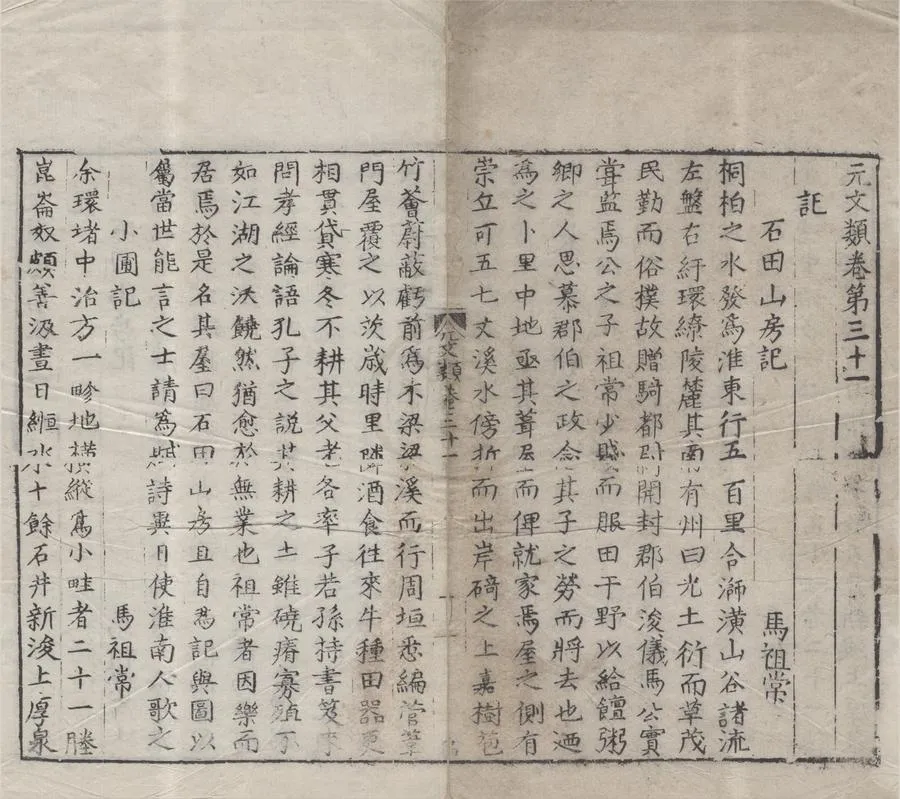 元文類卷第三十一
記
石田山房記 馬祖常
桐柏之水發爲淮東行五百里合㶏潢山谷諸流
左盤右紆環繚陵麓其南有州曰光土衍而草茂
民勤而俗樸故贈騎都尉開封郡伯浚儀馬公實
嘗監焉公之子祖常少賤而服田于野以給饘粥
鄉之人思慕郡伯之政念其子之勞而將去也迺
爲之卜里中地亟其葺屋而俾就家焉屋之側有
崇丘可五七丈溪水傍折而出岸碕之上嘉樹苞
元文類卷三十一
竹薈蔚蔽虧前爲木梁梁溪而行周垣悉編菅葦
門屋覆之以茨歲時里隣酒食往來牛種田器更
相貫貸寒冬不耕其父老各率子若孫持書笈來
問孝經論語孔子之說其耕之土雖磽瘠寡殖不
如江湖之沃饒然猶愈於無業也祖常者因樂而
居焉於是名其屋曰石田山房且自爲記與圖以
屬當世能言之士請爲賦詩異日使淮南人歌之
小圃記 馬祖常
余環堵中治方一畛地橫縱爲小畦者二十一塍
崑崙奴頗善汲晝日縆水十餘石井新浚上厚泉